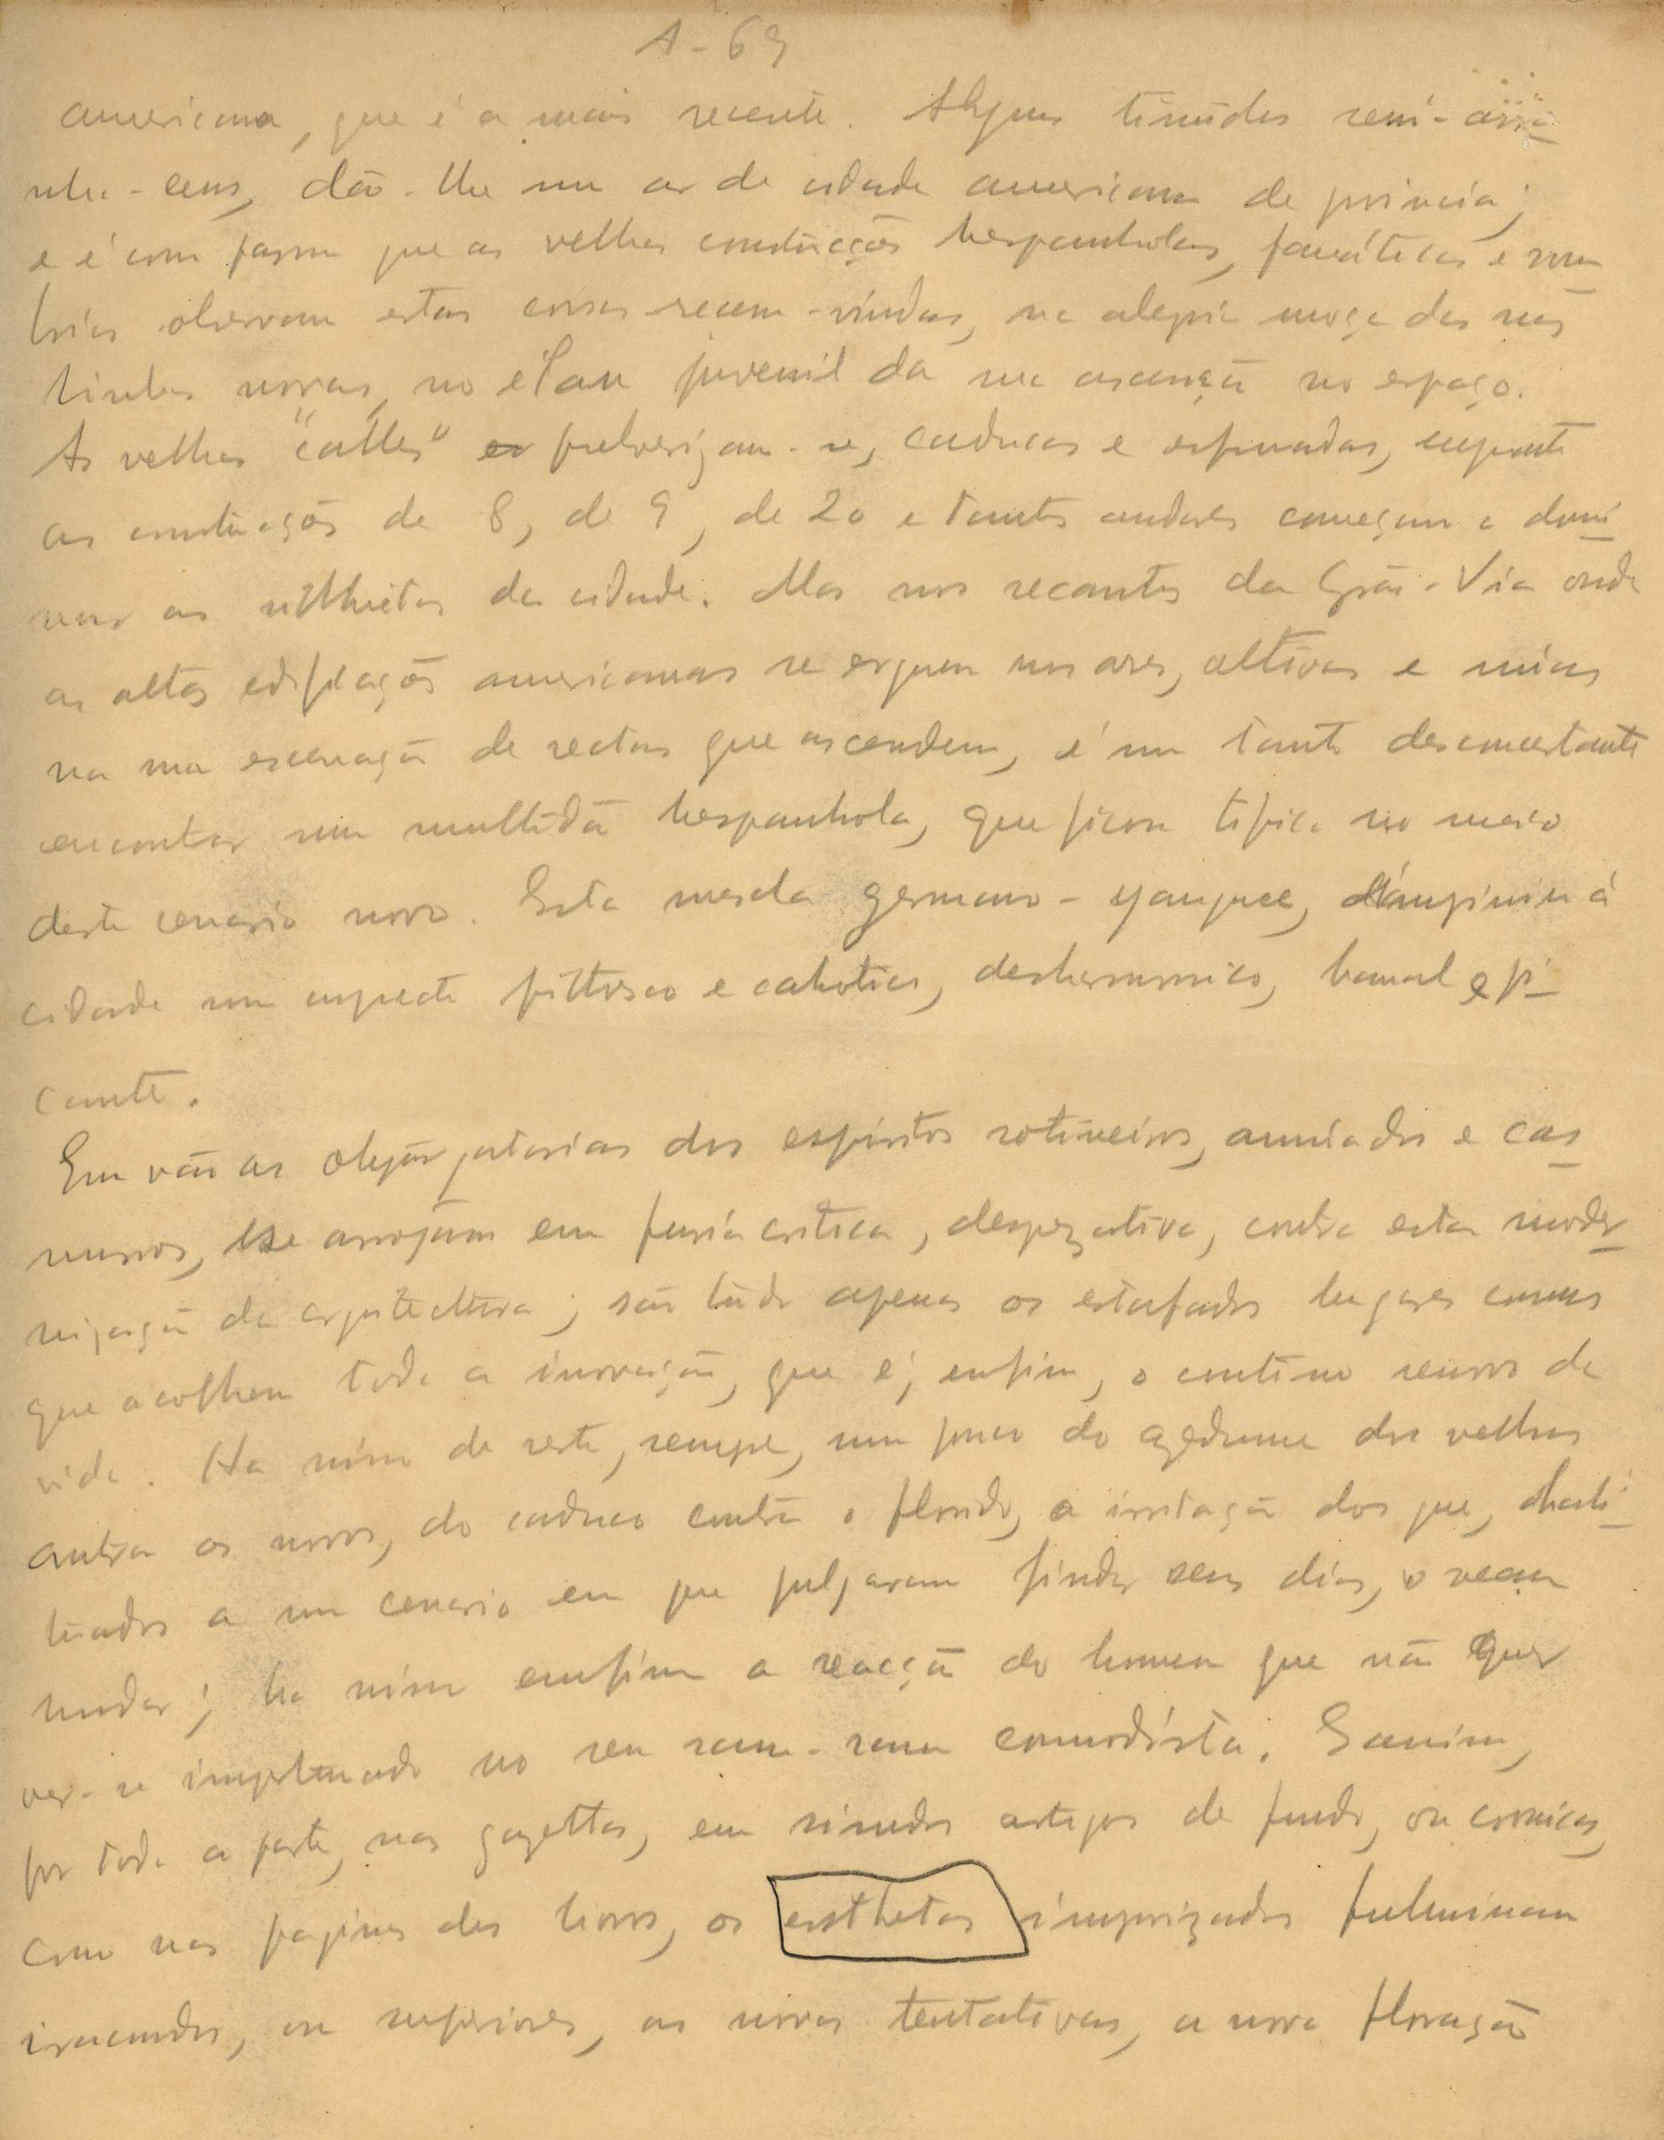 A-69
americana, que é a mais recente. Alguns timidos semi-arra
nha-ceus, dão-lhe um ar de cidade americana de provincia;
e é com pasmo que as velhas construcções hespanholas, fanáticas e som
brias observam estas coisas recem-vindas, na alegria moça das suas
tintas novas, no élan juvenil da sua ascenção no espaço.
As velhas "calles" pulverizam-se, caducas e esfumadas, emquanto
as construcções de 8, de 9, de 20 e tantos andares começam a domi
nar as silhuetas da cidade. Mas nos recantos da Grãn-Via onde
as altas edificações americanas se erguem nos ares, altivas e unicas
na sua encenação de rectas que ascendem, é um tanto desconcertante
encontrar uma multidão hespanhola, que ficou tipica no meio
deste cenario novo. Esta mescla germano-yanquee, imprimiu á
cidade um aspecto pittoresco e cahotico, desharmonico, banal e pi
cante.
Em vão as objurgatorias dos espiritos rotineiros, anuviados e cas
murros, se arrojam em furia critica, desprezativa, contra esta moder
nização da arquitectura; são tudo apenas os estafados lugares comuns
que acolhem toda a inovação, que é, enfim, o continuo renovo da
vida. Ha nisso de resto, sempre, um pouco do azedume dos velhos
contra os novos, do caduco contra o florido, a irritação dos que, habi
tuados a um cenario em que julgaram findar seus dias, o vêem
mudar; ha nisso emfim a reacção do homem que não quer
ver-se importunado no seu ram-ram comodista. E assim,
por toda a parte, nas gazettas, em sisudos artigos de fundo, ou cronicas,
como nas paginas dos livros, os esthetas improvizados fulminam
iracundos, ou superiores, as novas tentativas, a nova floração